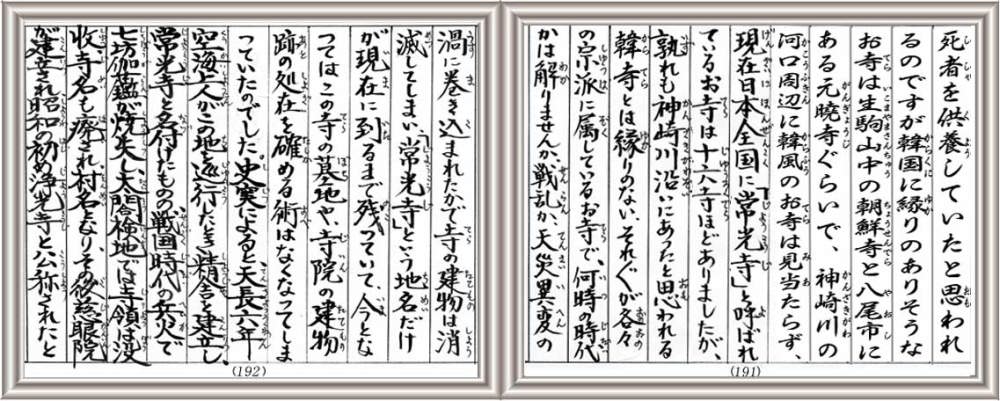 死者を供養していたと思われ
るのですが韓国に縁りのありそうな
お寺は生駒山中の朝鮮寺と八尾市に
ある元曉寺ぐらいで、神崎川の
河口周辺に韓風のお寺は見当たらず、
現在日本全国に「常光寺」と呼ばれ
ているお寺は十六寺ほどありましたが、
孰れも神崎川沿いにあったと思われる
韓寺とは縁りのない、それ〴〵が各々
の宗派に属しているお寺で、何時の時代
かは解りませんが、戦乱か、天災異変の
(191)
渦に巻き込まれたかで寺の建物は消
滅してしまい、「常光寺」という地名だけ
が現在に到るまで残っていて、今とな
ってはこの寺の墓地や、寺院の建物
跡の処在を確める術はなくなってしま
っていたのでした。史実によると、天長六年
空海上人がこの地を巡行したとき精舎を建立し、
常光寺と名付けたものの戦国時代の兵火で
七坊伽藍が焼失し太閤検地では寺領は没
収、寺名も廃され村名となり、その後慈眼院
が建立され昭和の初め浄光寺と公称されたと
(192)